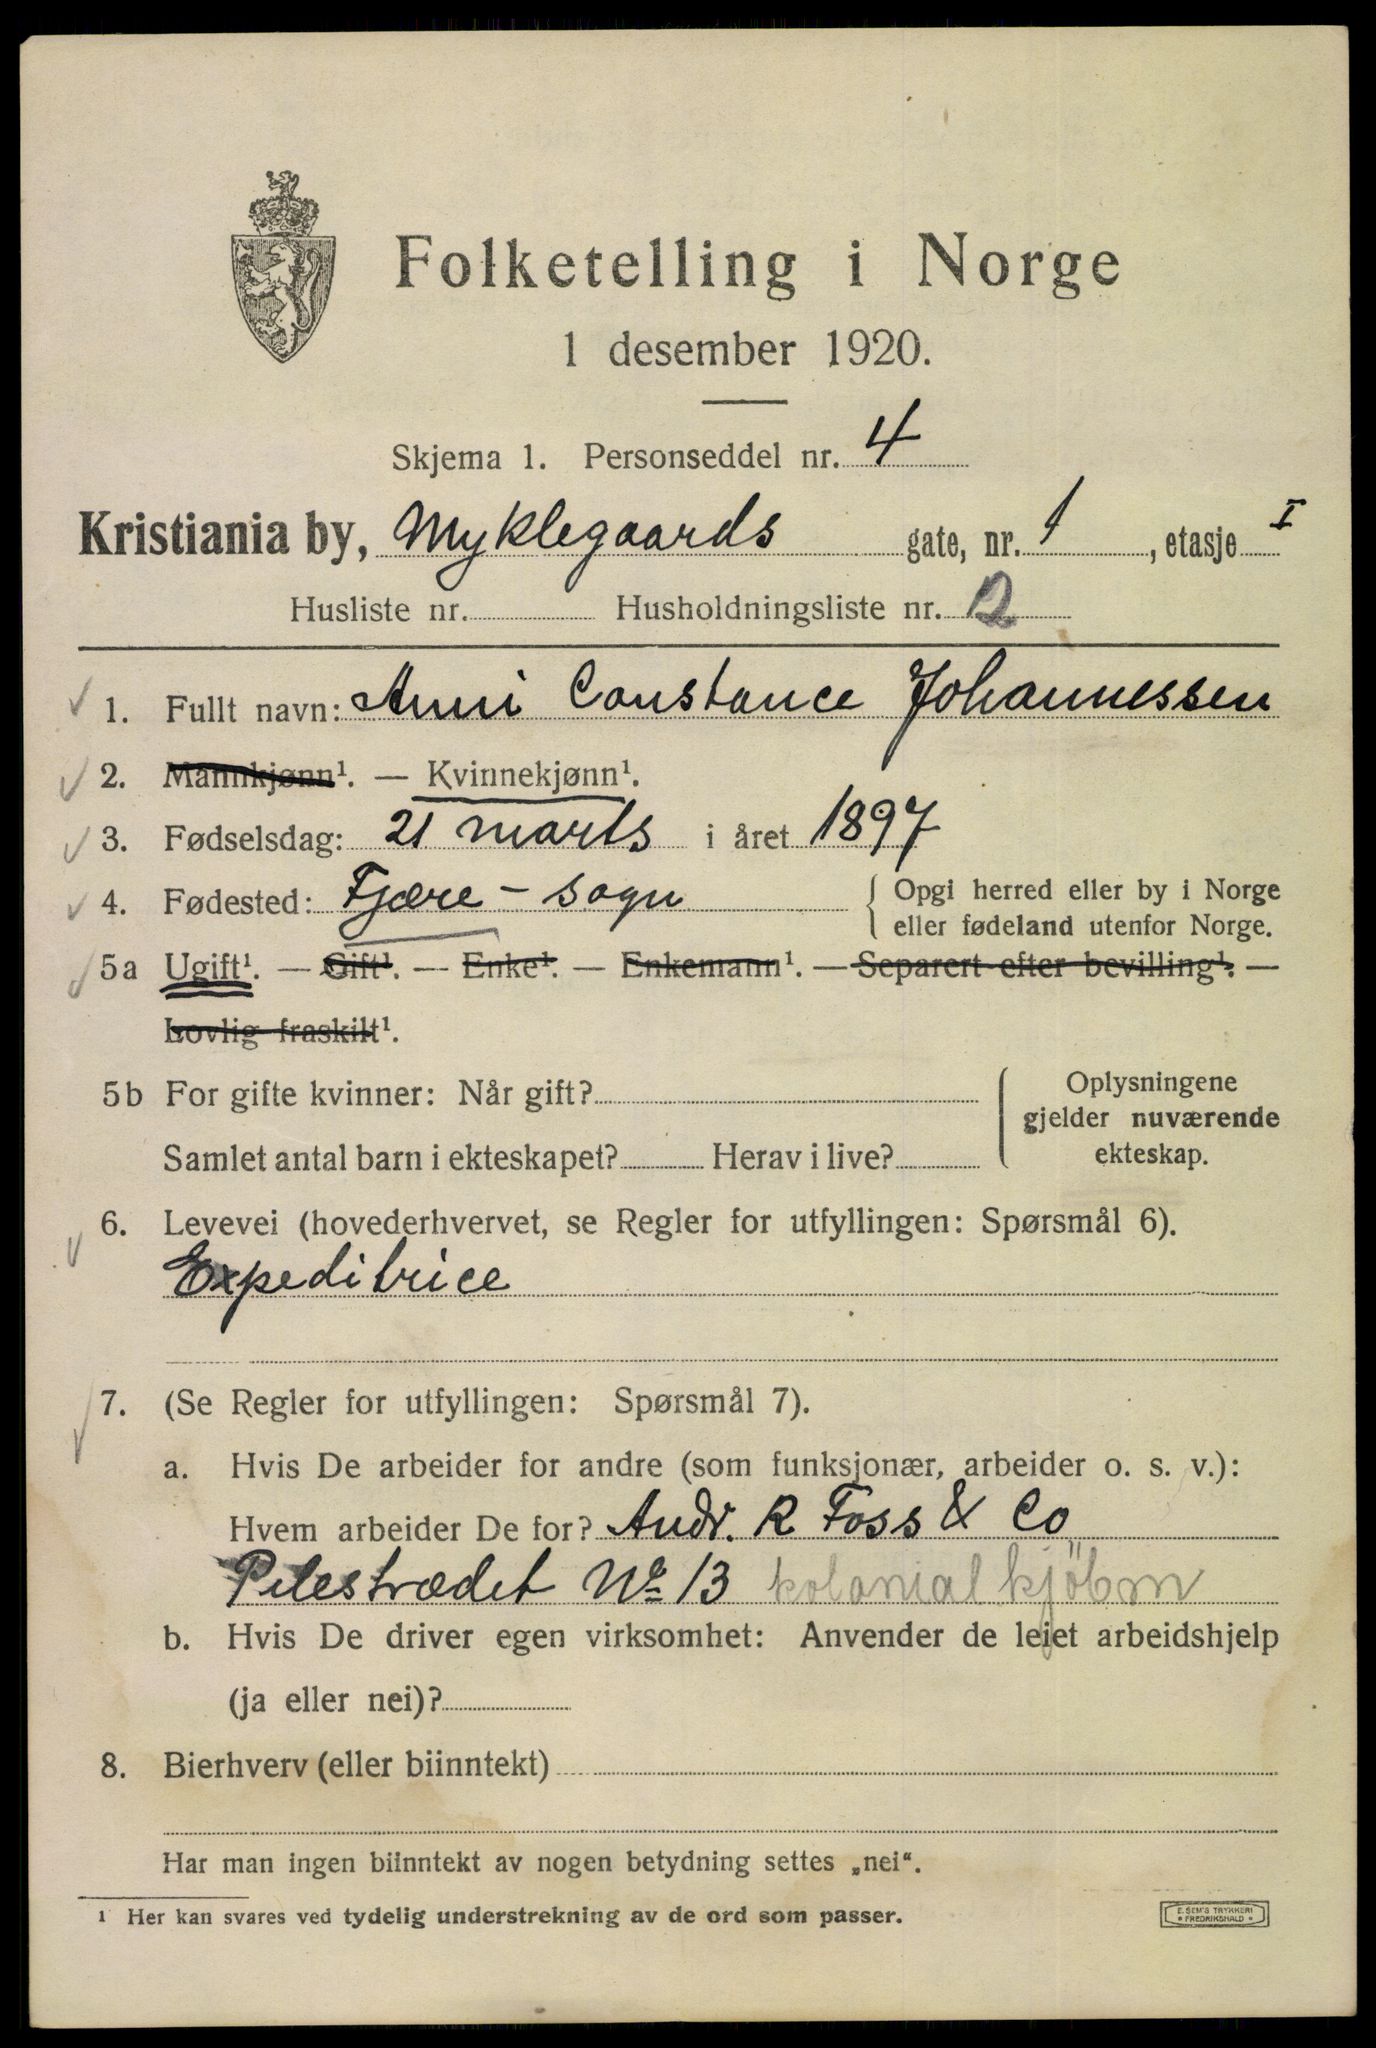 Folketelling i Norge
1 desember 1920.
Skjema 1. Personseddel nr. 4
Kristiania by, Myklegaards gate, nr. 1, etasje I
Husliste nr. Husholdningsliste nr. 2
1. Fullt navn: Anni Constance Johannessen
2. Mannkjønn¹. — Kvinnekjønn¹.
3. Fødselsdag: 21 marts i året 1897
4. Fødested: Fjære - sogn { Opgi herred eller by i Norge
eller fødeland utenfor Norge.
5a Ugift¹. — Gift¹. — Enke¹. — Enkemann¹. — Separert efter bevilling¹. —
Lovlig fraskilt¹.
5b For gifte kvinner: Når gift?
Samlet antal barn i ekteskapet? Herav i live?
Oplysningene
gjelder nuværende
ekteskap.
6. Levevei (hovederhvervet, se Regler for utfyllingen: Spørsmål 6).
Expeditrice
7. (Se Regler for utfyllingen: Spørsmål 7).
a. Hvis De arbeider for andre (som funksjonær, arbeider o. s. v.):
Hvem arbeider De for? Andr. R Foss & Co
Pilestrædet No 13 kolonial kjöbm
b. Hvis De driver egen virksomhet: Anvender de leiet arbeidshjelp
(ja eller nei)?
8. Bierhverv (eller biinntekt)
Har man ingen biinntekt av nogen betydning settes „nei“.
¹ Her kan svares ved tydelig understrekning av de ord som passer.
E. SEM'S TRYKKERI
* FREDRIKSHALD *